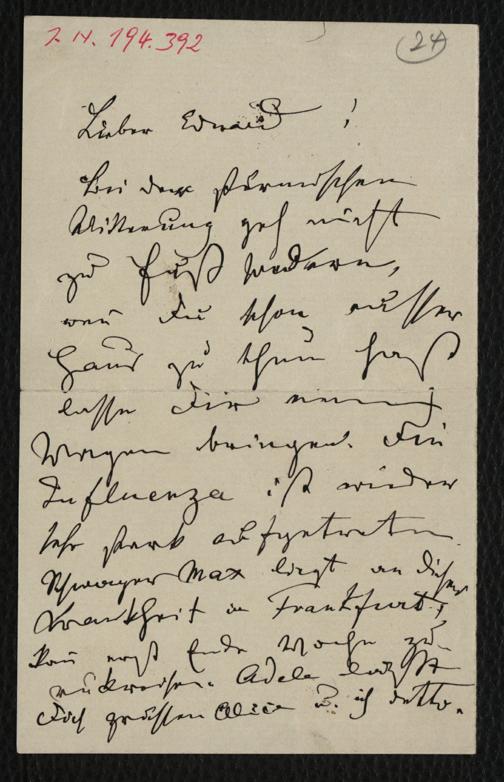 I. N. 194.392
24
Lieber Eduard !
Bei der stürmischen
Witterung geh nicht
zu Fuß sondern,
wen Du schon ausser
Haus zu thun hast
lasse Dir einen
Wagen bringen. Die
Influenza ist wieder
sehr stark aufgetreten.
Schwager Max liegt an dieser
Krankheit in Frankfurt,
kan erst Ende Woche zu-
rükreisen. Adele läßt
Dich grüssen Alice B. ich detto.